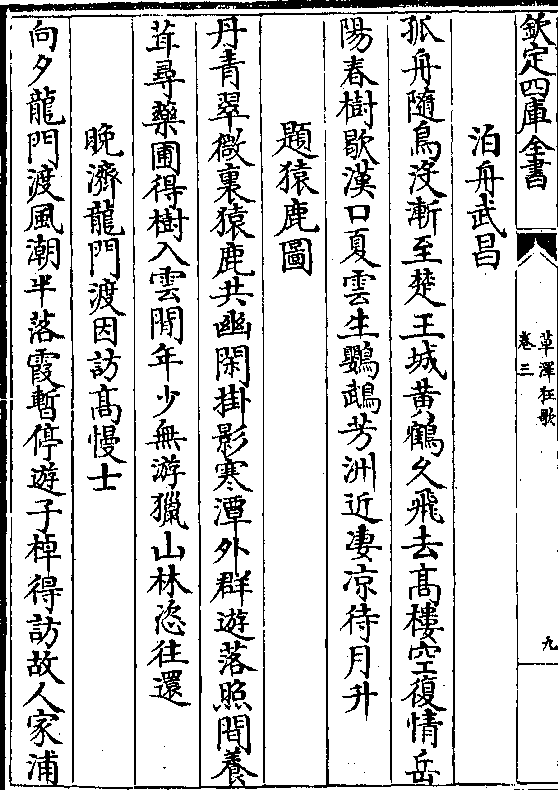 欽定四庫全書
草澤狂歌
卷三
九
泊舟武昌
孤舟隨鳥没漸至楚王城黄鶴久飛去高樓空復情岳
陽春樹歇漢口夏雲生鸚鵡芳洲近凄凉待月升
題猿鹿圖
丹青翠微裏猿鹿共幽閑掛影寒潭外群遊落照間養
茸尋藥圃得樹入雲間年少無游獵山林恣往還
晚濟龍門渡因訪高慢士
向夕龍門渡風潮半落霞暫停遊子棹得訪故人家浦